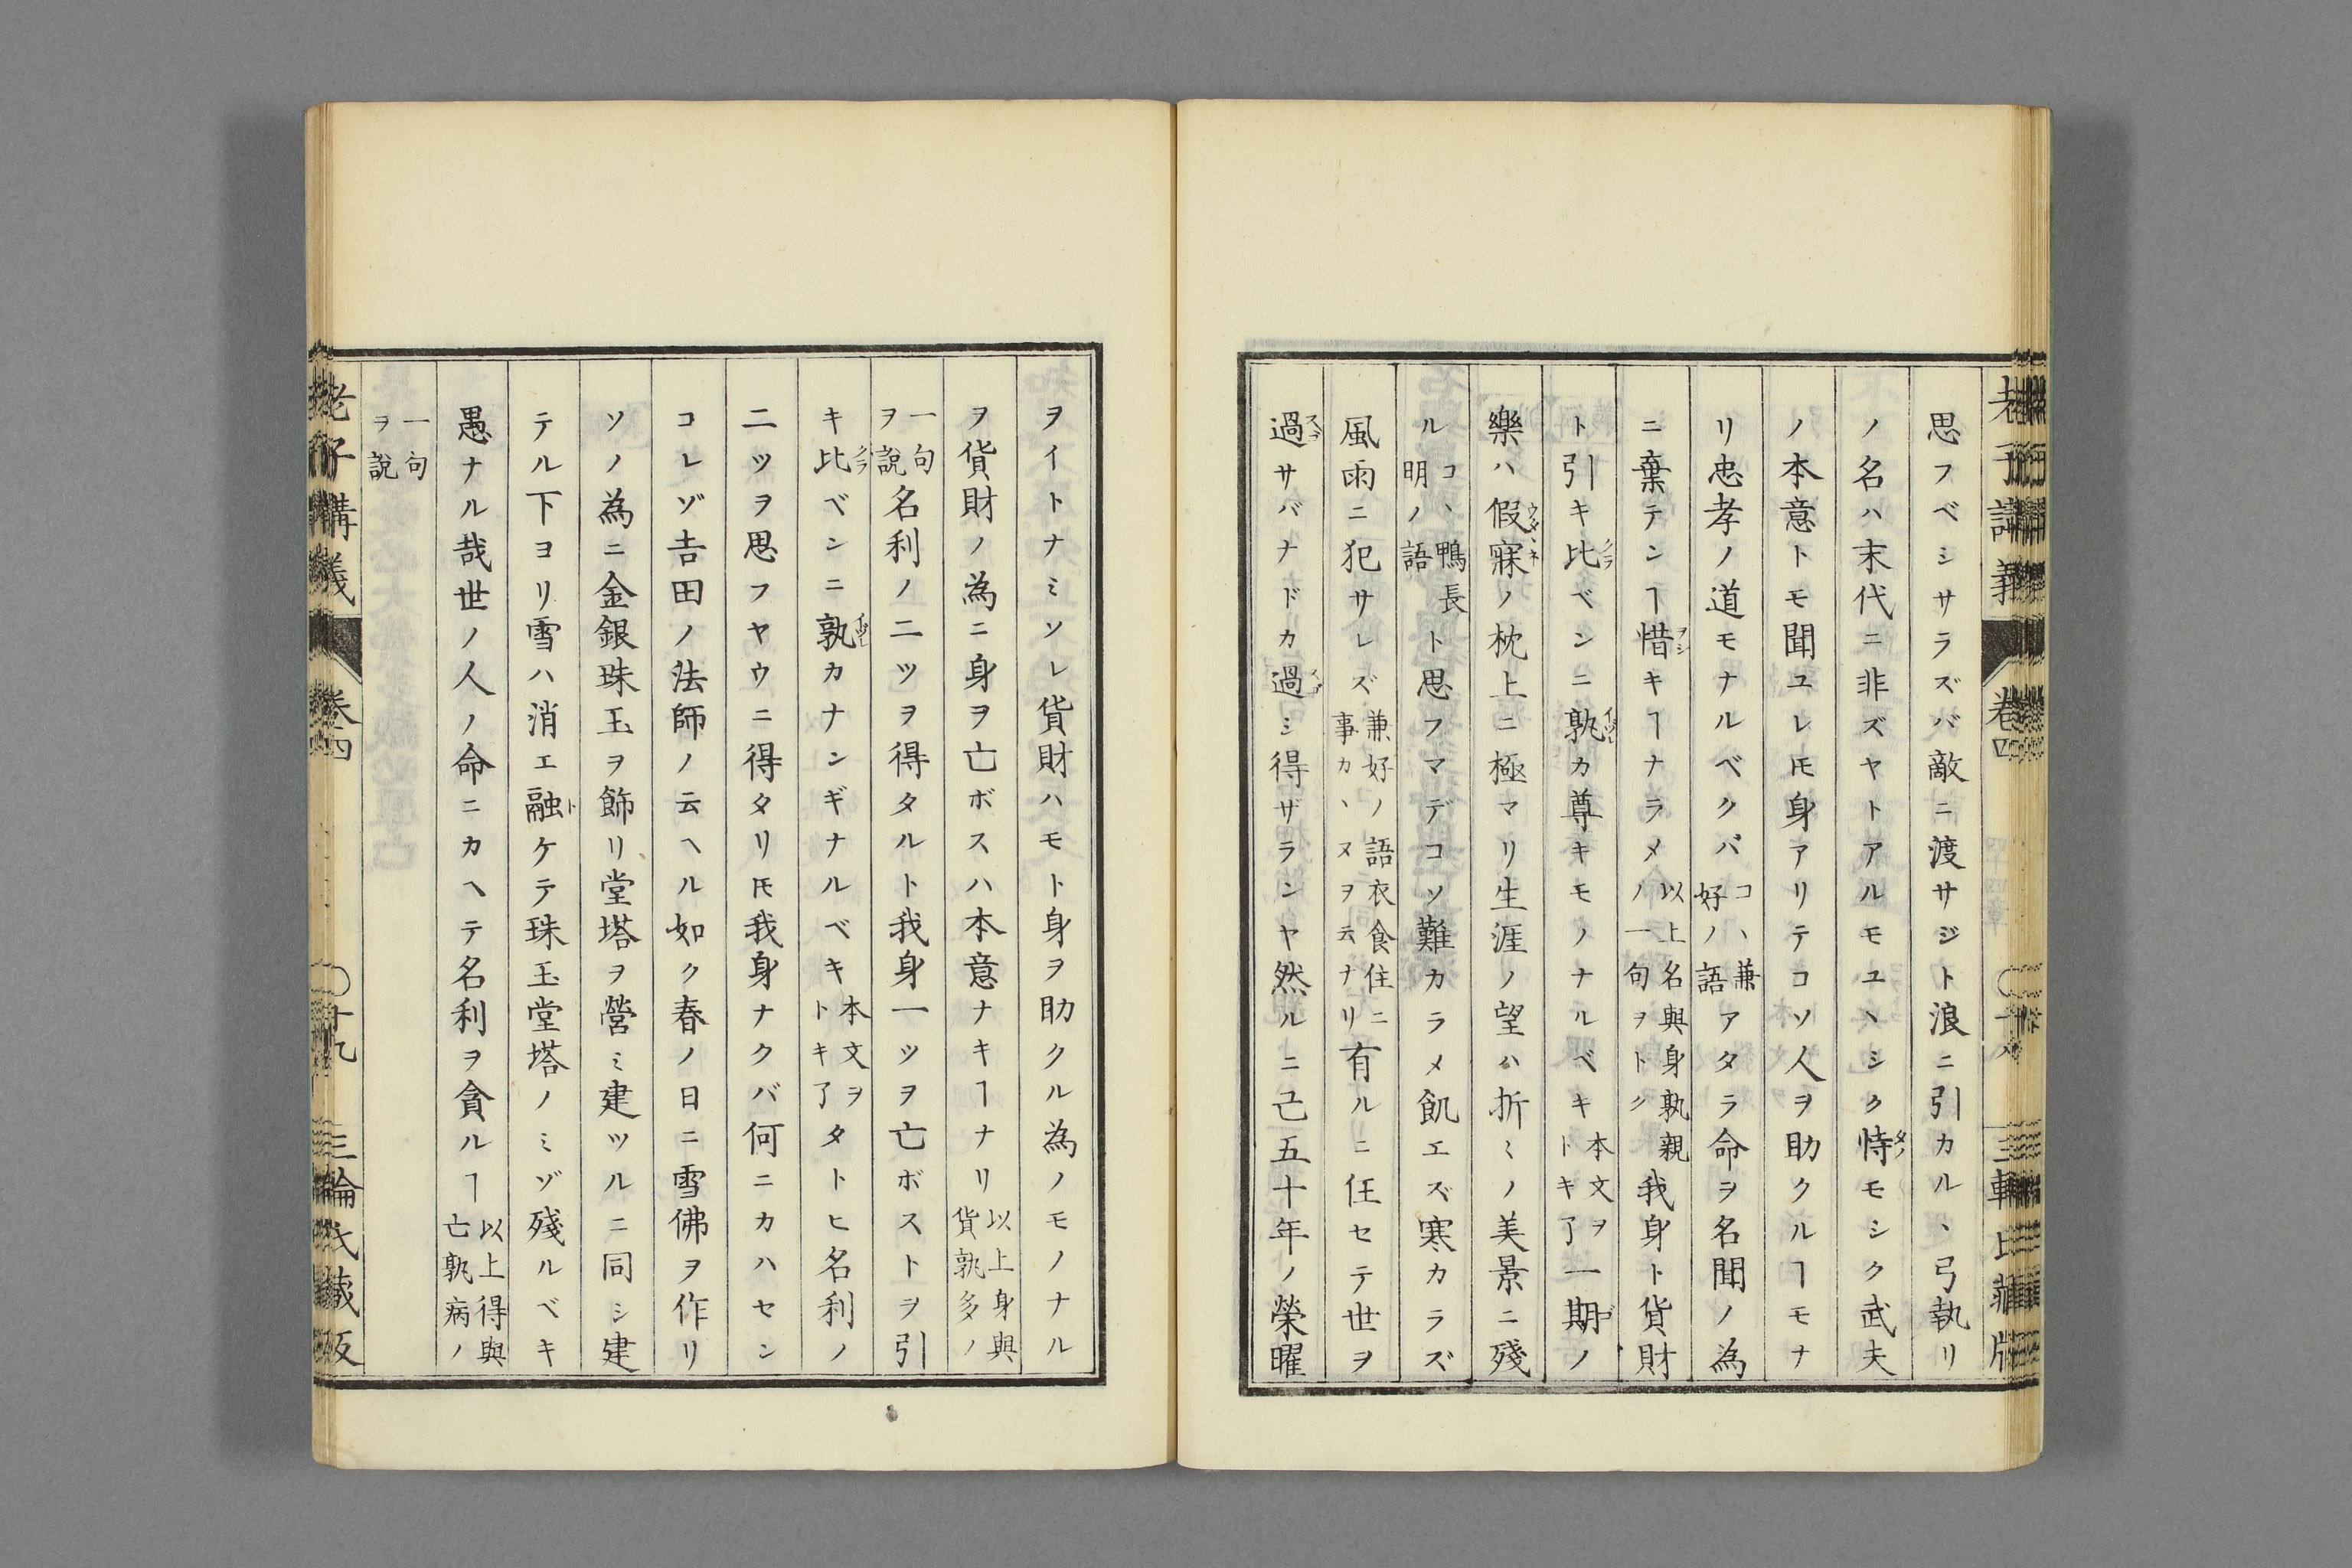 老子講義 卷四 〇十八 三輪氏藏版
思フベシサラズバ敵ニ渡サジト浪ニ引カル、弓執リ
ノ名ハ末代ニ非ズヤトアルモユ、シク恃モシク武夫
ノ本意トモ聞ユレ𪜈身アリテコソ人ヲ助クルヿモナ
リ忠孝ノ道モナルベクバコ、兼好ノ語アタラ命ヲ名聞ノ為
ニ棄テンヿ惜キヿナラメ以上名與身孰親ノ一句ヲトク我身ト貨財
ト引キ比ベンニ孰カ尊キモノナルベキ本文ヲトキ了一期ノ
樂ハ假寐ノ枕上ニ極マリ生涯ノ望ハ折ミノ美景ニ殘
ルコ、鴨長明ノ語ト思フマデコソ難カラメ飢エズ寒カラズ
風雨ニ犯サレズ兼好ノ語衣食住ニ事カ、ヌヲ云ナリ有ルニ任セテ世ヲ
過サバナドカ過シ得ザランヤ然ルニ己五十年ノ榮曜
ヲイトナミソレ貨財ハモト身ヲ助クル為ノモノナル
ヲ貨財ノ為ニ身ヲ亡ボスハ本意ナキヿナリ以上身與貨孰多ノ
一句ヲ說名利ノ二ツヲ得タルト我身一ツヲ亡ボストヲ引
キ比ベンニ孰カナンギナルベキ本文ヲトキ了タトヒ名利ノ
二ツヲ思フヤウニ得タリ𪜈我身ナクバ何ニカハセン
コレゾ吉田ノ法師ノ云ヘル如ク春ノ日ニ雪佛ヲ作リ
ソノ為ニ金銀珠玉ヲ飾リ堂塔ヲ營ミ建ツルニ同シ建
テル下ヨリ雪ハ消エ融ケテ珠玉堂塔ノミゾ殘ルベキ
愚ナル哉世ノ人ノ命ニカヘテ名利ヲ貪ルヿ以上得與亡孰病ノ
一句ヲ說
老子講義 卷四 〇十九 三輪氏藏版